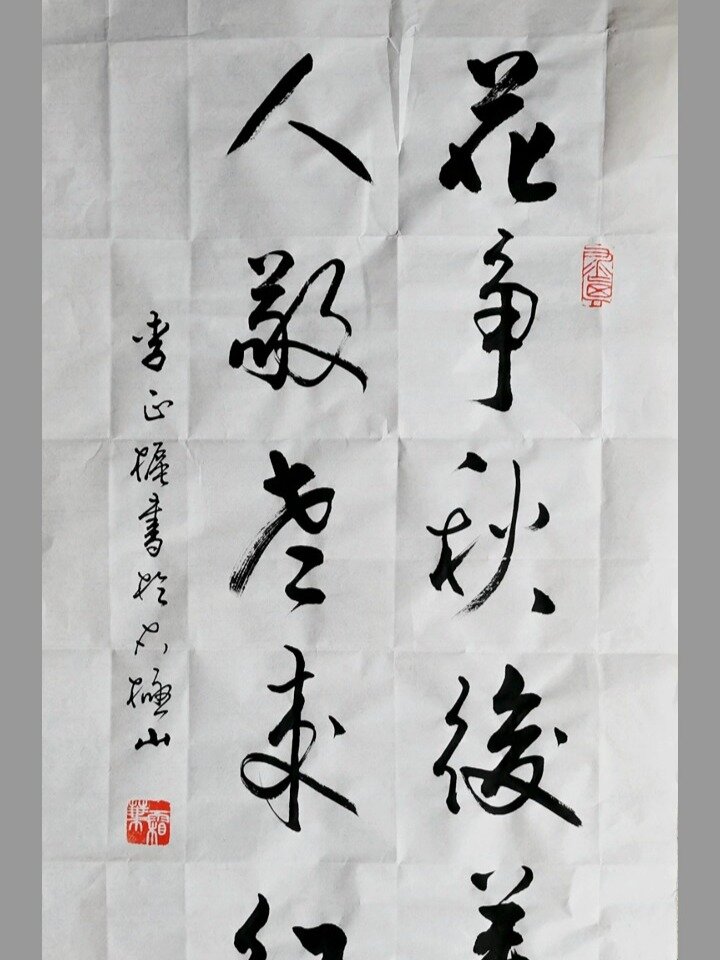 花争秋後美
人敬老来红
李正書於太極山
霜葉